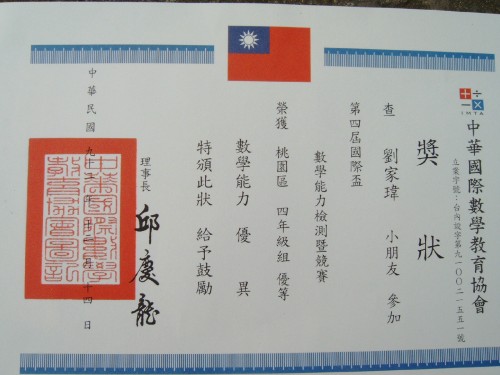 IMTA
中華國際數學教育協會
立案字號：台內設字第九一〇〇二一五五一號
獎狀
查 劉家瑋 小朋友 參加
第四屆國際盃
數學能力檢測暨競賽
榮獲 桃園區 四年級組 優等
數學能力 優 異
特頒此狀 給予鼓勵
理事長 邱慶龍
中華國際數學教育協會圖記
中華民國九十三年十二月十四日